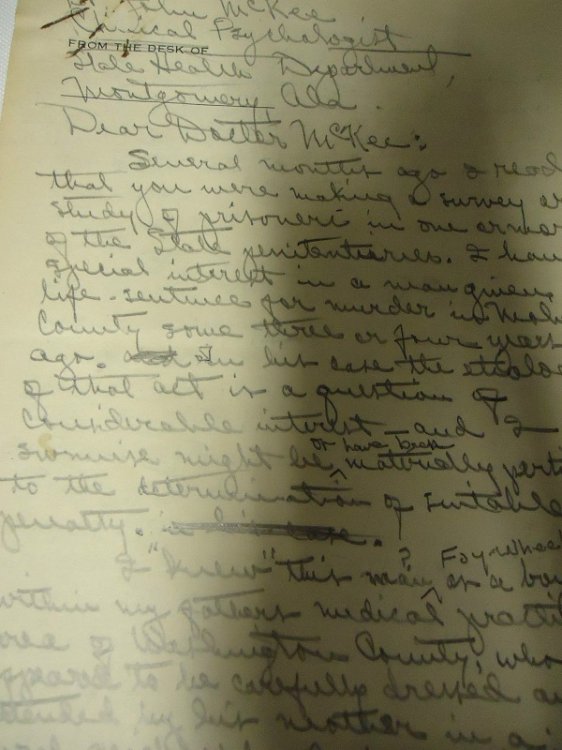 John McKee
Clinical Psychologist
FROM THE DESK OF
State Health Department,
Montgomery, Ala.
Dear Doctor McKee:
Several months ago I read
that you were making a survey or
study of prisoners in one or more
of the State penitentiaries. I have
special interest in a man given
life-sentence for murder in Mob
County some three or four years
ago. In his case the etiolo
of that act is a question of
considerable interest - and I
surmise might be, or have been materially perti
to the determination of suitable
penalty. in his case.
I "knew" this man, ? Foy Whee as a boy
within my father's medical practi
area of Washington County, who
appeared to be carefully dressed an
attended by his mother in a